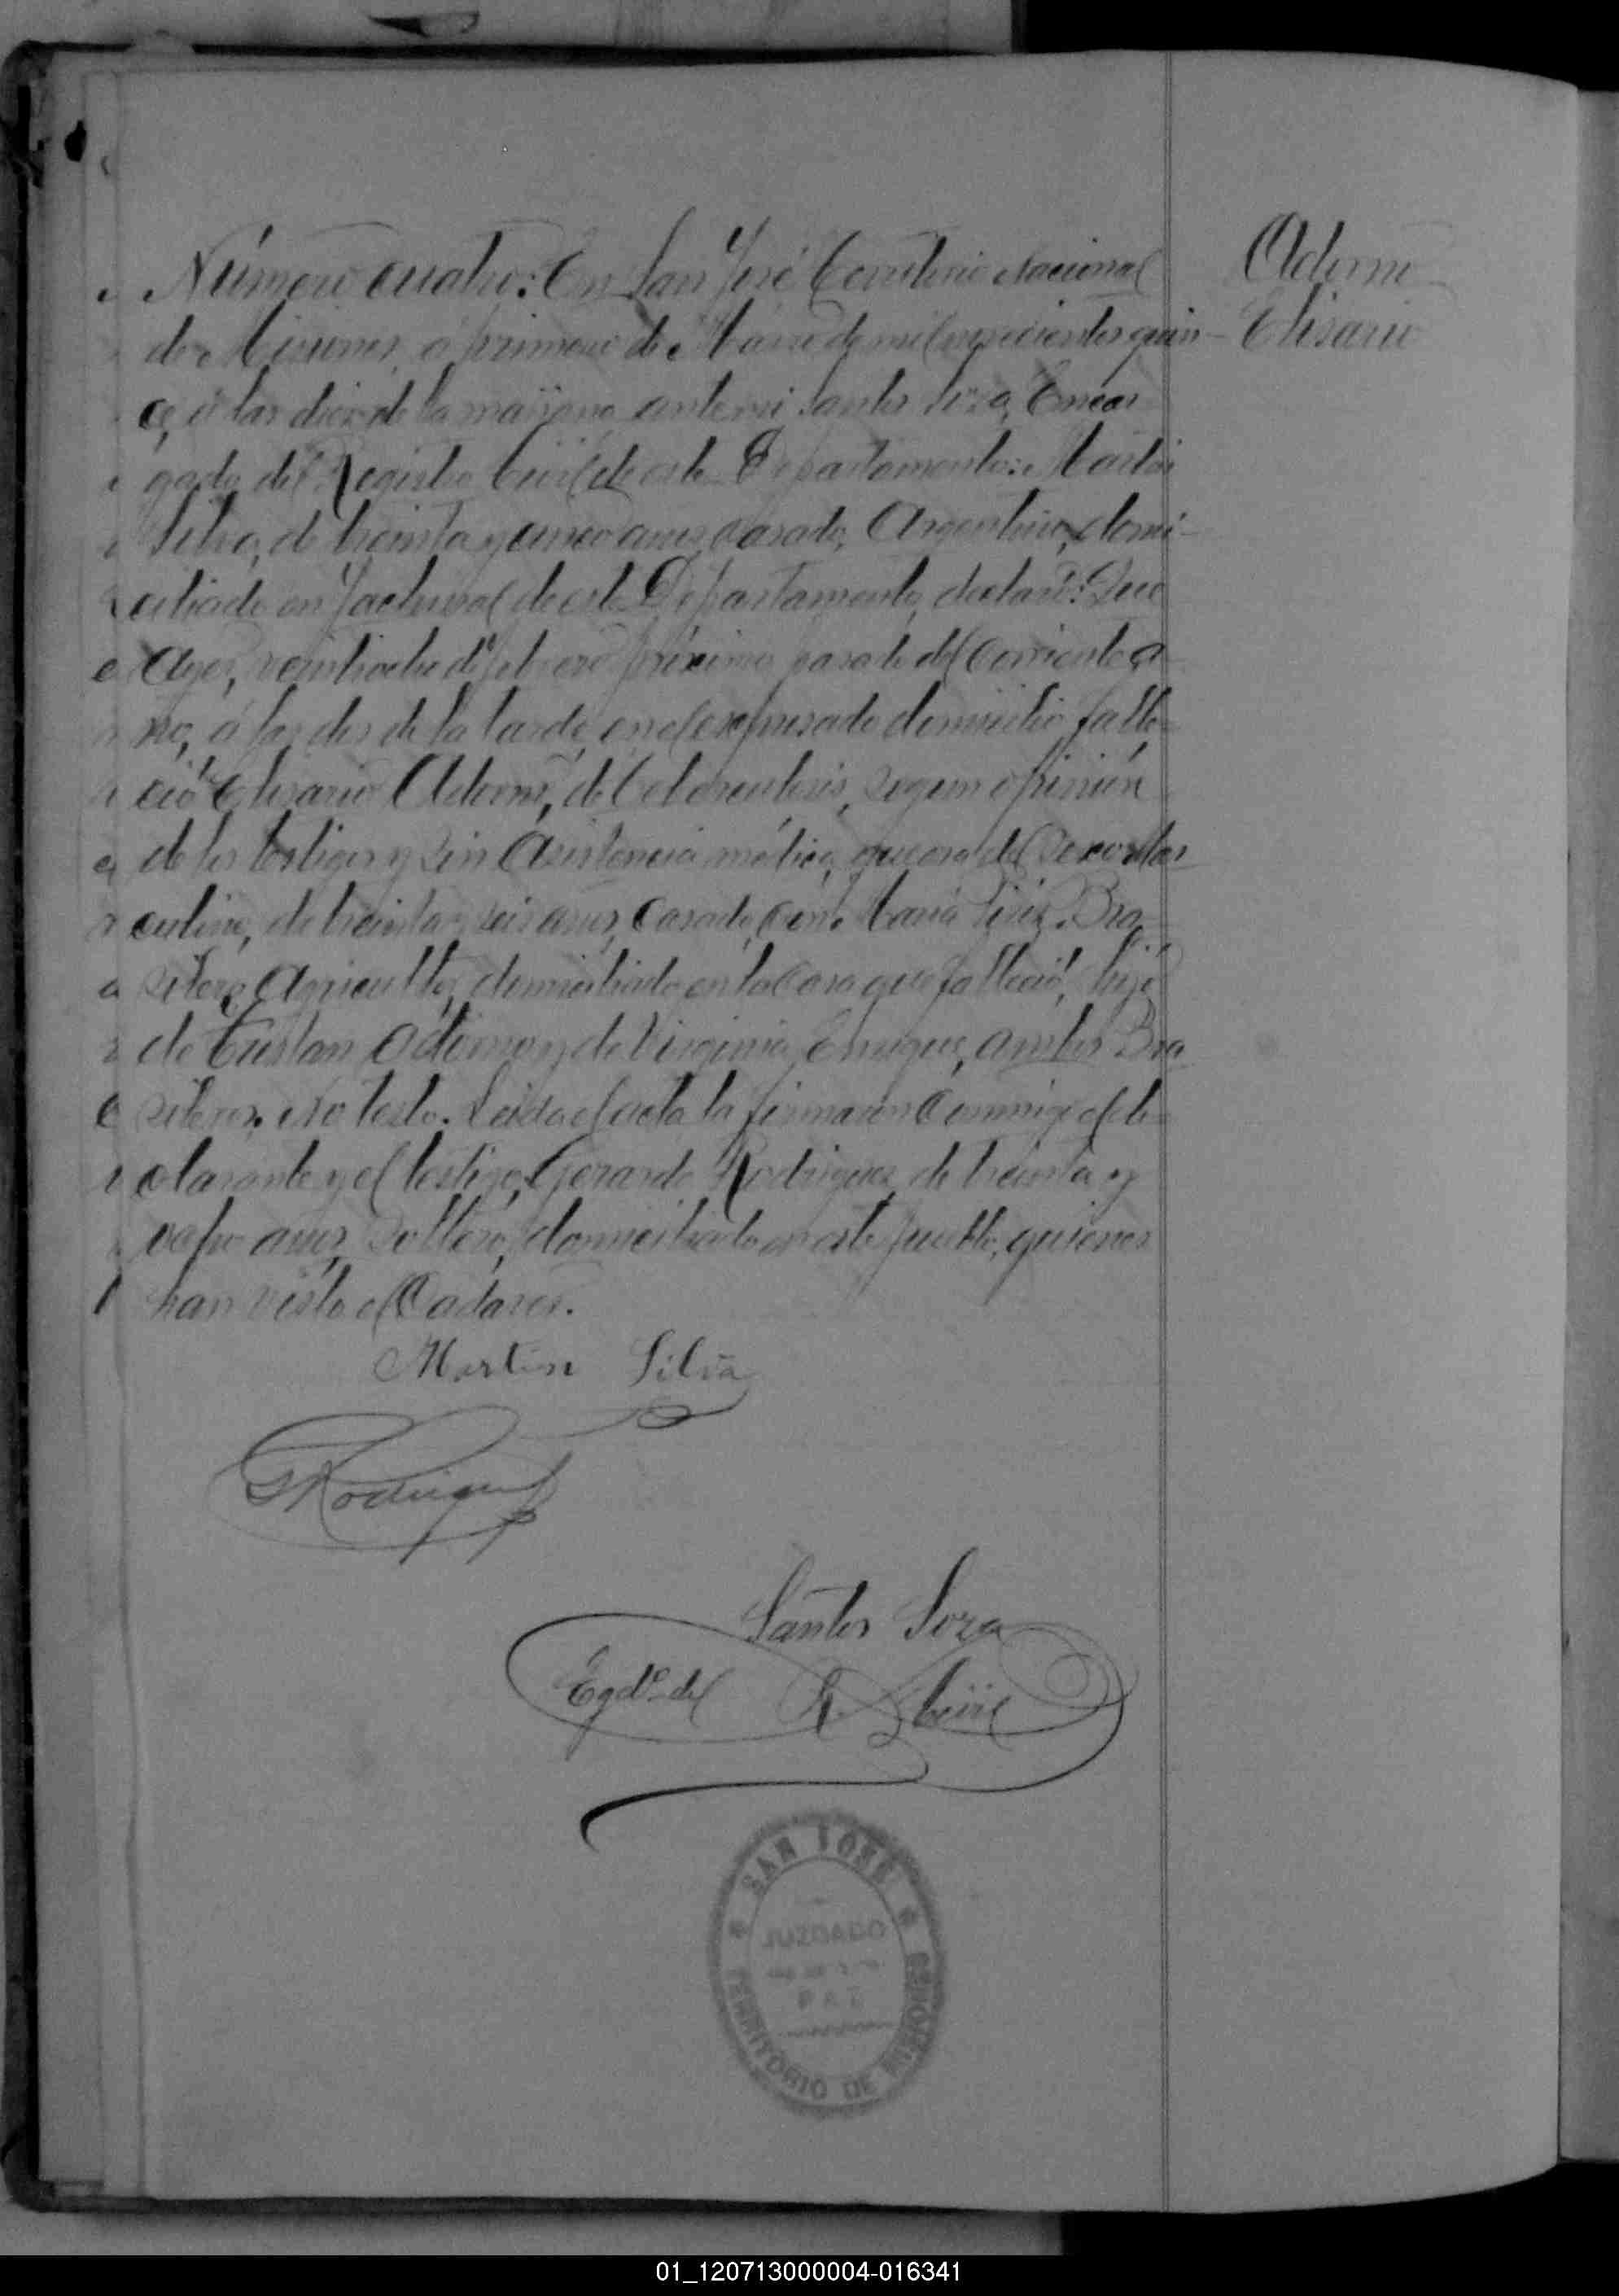 Número cuatro: En San José Territorio Nacional
de Misiones, á primero de Marzo de mil novecientos quin-
ce, á las diez de la mañana, ante mi Santos Soza, Encar
gado del Registro Civil de este Departamento: Martin
Silva, de treinta y cinco años, casado, Argentino, domi-
ciliado en Pachival de este Departamento, declaró: Que
Ayer, veintiocho de febrero próximo pasado del Corriente a
ño, á las dos de la tarde, en el expresado domicilio falle
ció Elisario Adorno, de, segun opinión
de los testigos y sin Asistencia médica, que era del sexo mas
culino, de treinta y seis años, Casado, con Maria Bra
silero, Agricultor, domiciliado en la Casa que falleció, hijo
de Adorno y de Virginia, ambos Bra
sileros. No testo. Leida el acta la firmaron Conmigo el de
clarante y el testigo, Gerardo Rodriguez, de treinta y
años, Soltero, domiciliado en este pueblo, quienes
han visto el Cadaver.
Adorno
Elisario
Martin Silva
GRodriguez
Santos Soza
Egdo. del R. Civil
SAN JOSE
JUZGADO
DE
PAZ
TERRITORIO DE MISIONES
01_120713000004-016341